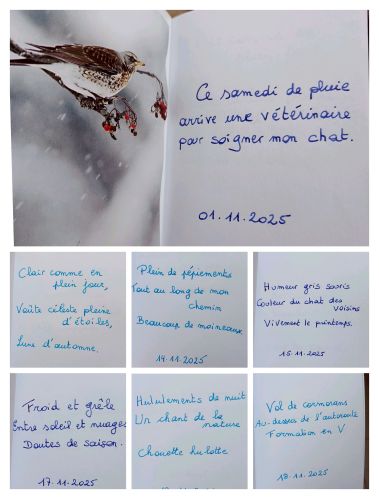 Ce samedi de pluie
arrive une vétérinaire
pour soigner mon chat.
01.11.2025
Clair comme en
plein jour,
Voûte céleste pleine
d'étoiles,
Lune d'automne.
Plein de pépiements
Tout au long de mon
chemin
Beaucoup de moineaux.
14.11.2025
Humeur gris souris
Couleur du chat des
voisins
Vivement le printemps.
15.11.2025
Froid et grêle
Entre soleil et nuages
Doutes de saison.
17.11.2025
Hululements de nuit
Un chant de la
nature
Chouette hulotte
Vol de cormorans
Au-dessus de l'autoroute
Formation en V
18.11.2025